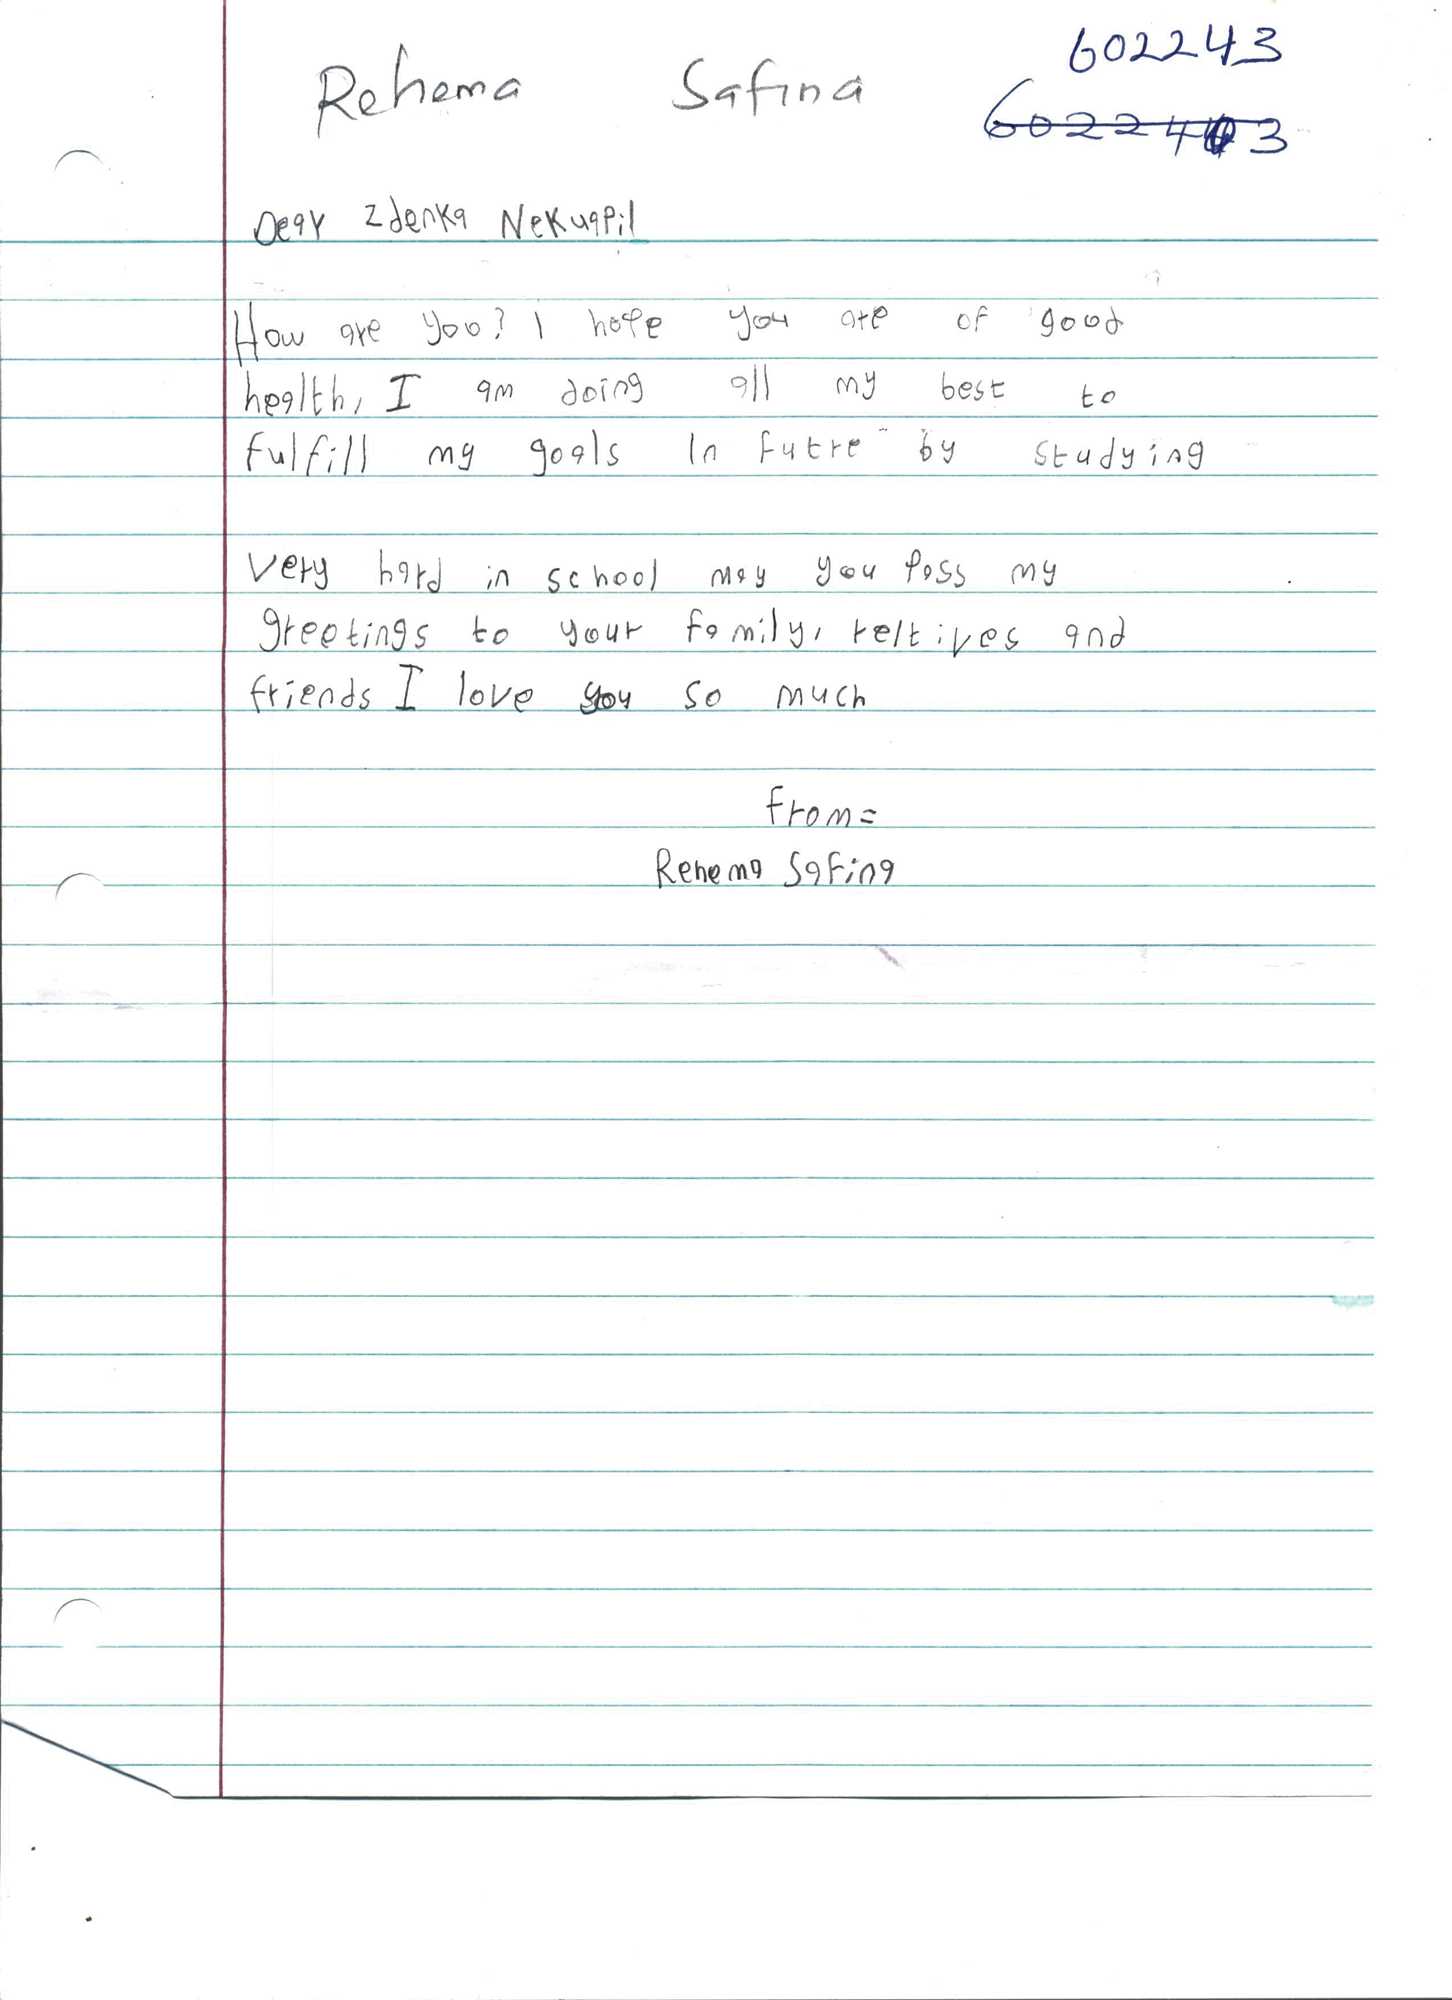 Rehema Safina 602243
Dear Zdenka Nekuapil
How are you? I hope you are of good
health, I am doing all my best to
fulfill my goals In futre by studying
Very hard in school may you pass my
greetings to your family, reltives and
friends I love you so much
from=
Rehema Safina